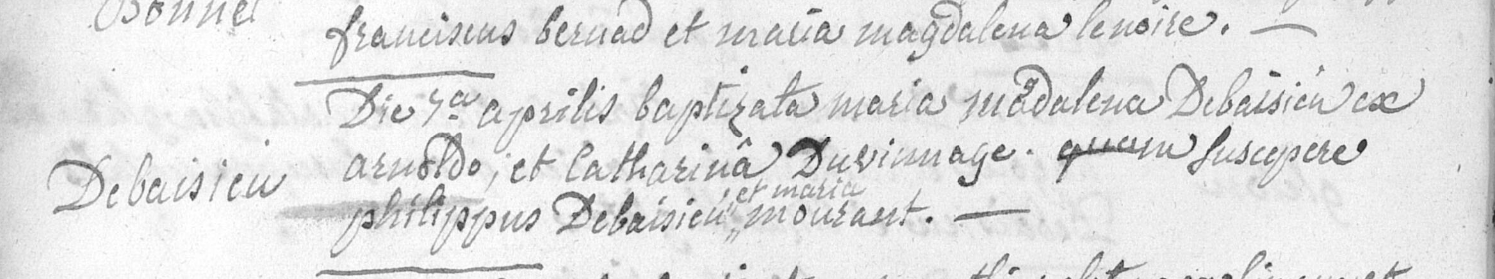 Bonnel
franciscus bernad et maria magdalena lenoire. —
Die 7a aprilis baptizata maria madalena Debaisieu ex
Debaisieu
arnoldo, et Catharinâ Duvinnage. quam suscepere
et maria
philippus Debaisieu mourant. —